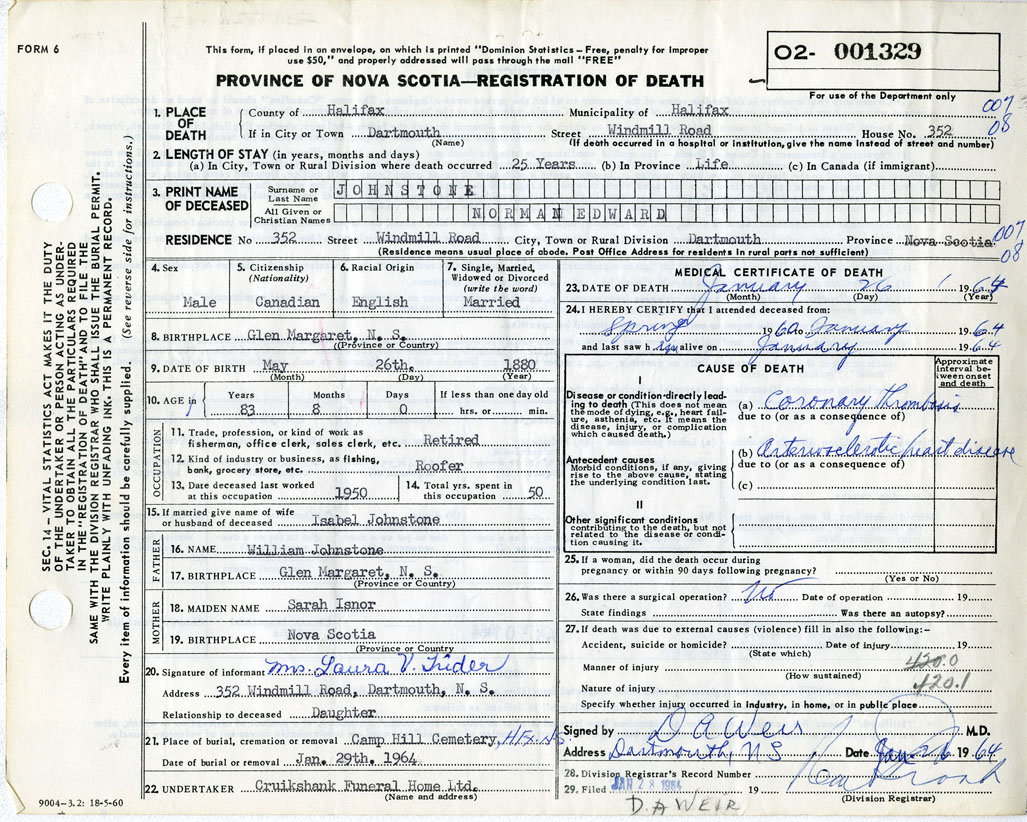 FORM 6
This form, if placed in an envelope, on which is printed "Dominion Statistics – Free, penalty for improper
use $50," and properly addressed will pass through the mail "FREE"
PROVINCE OF NOVA SCOTIA—REGISTRATION OF DEATH
02- 001329
For use of the Department only
007
08
1. PLACE OF DEATH { County of Halifax Municipality of Halifax
If in City or Town Dartmouth Street Windmill Road House No. 352
(Name) (If death occurred in a hospital or institution, give the name instead of street and number)
2. LENGTH OF STAY (in years, months and days)
(a) In City, Town or Rural Division where death occurred 25 Years (b) In Province Life (c) In Canada (if immigrant)
3. PRINT NAME OF DECEASED
Surname or Last Name JOHNSTONE
All Given or Christian Names NORMAN EDWARD
RESIDENCE No 352 Street Windmill Road City, Town or Rural Division Dartmouth Province Nova Scotia
(Residence means usual place of abode. Post Office Address for residents in rural parts not sufficient)
007
08
4. Sex
Male
5. Citizenship (Nationality)
Canadian
6. Racial Origin
English
7. Single, Married, Widowed or Divorced (write the word)
Married
8. BIRTHPLACE Glen Margaret, N. S.
(Province or Country)
9. DATE OF BIRTH May 26th. 1880
(Month) (Day) (Year)
10. AGE in Years Months Days If less than one day old
83 8 0 hrs. or min.
OCCUPATION
11. Trade, profession, or kind of work as
fisherman, office clerk, sales clerk, etc. Retired
12. Kind of industry or business, as fishing,
bank, grocery store, etc. Roofer
13. Date deceased last worked
at this occupation 1950
14. Total yrs. spent in
this occupation 50
15. If married give name of wife
or husband of deceased Isabel Johnstone
FATHER
16. NAME William Johnstone
17. BIRTHPLACE Glen Margaret, N. S.
(Province or Country)
MOTHER
18. MAIDEN NAME Sarah Isnor
19. BIRTHPLACE Nova Scotia
(Province or Country)
20. Signature of informant Mrs. Laura V. Trider
Address 352 Windmill Road, Dartmouth, N. S.
Relationship to deceased Daughter
21. Place of burial, cremation or removal Camp Hill Cemetery, Hfx. N.S
Date of burial or removal Jan. 29th. 1964
22. UNDERTAKER Cruikshank Funeral Home Ltd.
(Name and address)
MEDICAL CERTIFICATE OF DEATH
23. DATE OF DEATH January 26 1964
(Month) (Day) (Year)
24. I HEREBY CERTIFY that I attended deceased from:
Spring 1960 January 1964
and last saw him alive on January 1964
CAUSE OF DEATH
Approximate interval between onset and death
I
Disease or condition directly leading
to death (This does not mean
the mode of dying, e.g., heart failure,
asthenia, etc. It means the
disease, injury, or complication
which caused death.)
(a) Coronary thrombosis
due to (or as a consequence of)
Antecedent causes
Morbid conditions, if any, giving
rise to the above cause, stating
the underlying condition last.
(b) Arteriosclerotic heart disease
due to (or as a consequence of)
(c)
II
Other significant conditions
contributing to the death, but not
related to the disease or condition
causing it.
25. If a woman, did the death occur during
pregnancy or within 90 days following pregnancy?
(Yes or No)
26. Was there a surgical operation? No Date of operation 19
State findings Was there an autopsy?
27. If death was due to external causes (violence) fill in also the following:–
Accident, suicide or homicide? Date of injury 19
(State which)
Manner of injury
(How sustained)
420.0
420.1
Nature of injury
Specify whether injury occurred in industry, in home, or in public place
Signed by D A Weir M.D.
Address Dartmouth, N S Date Jan. 26 1964
28. Division Registrar's Record Number
29. Filed JAN 28 1964 19
(Division Registrar)
D.A WEIR
SEC. 14 – VITAL STATISTICS ACT MAKES IT THE DUTY
OF THE UNDERTAKER OR PERSON ACTING AS UNDERTAKER
TO OBTAIN ALL THE PARTICULARS REQUIRED
IN THE "REGISTRATION OF DEATH" AND TO FILE THE
SAME WITH THE DIVISION REGISTRAR WHO SHALL ISSUE THE BURIAL PERMIT.
WRITE PLAINLY WITH UNFADING INK. THIS IS A PERMANENT RECORD.
Every item of information should be carefully supplied. (See reverse side for instructions.)
9004–3.2: 18-5-60